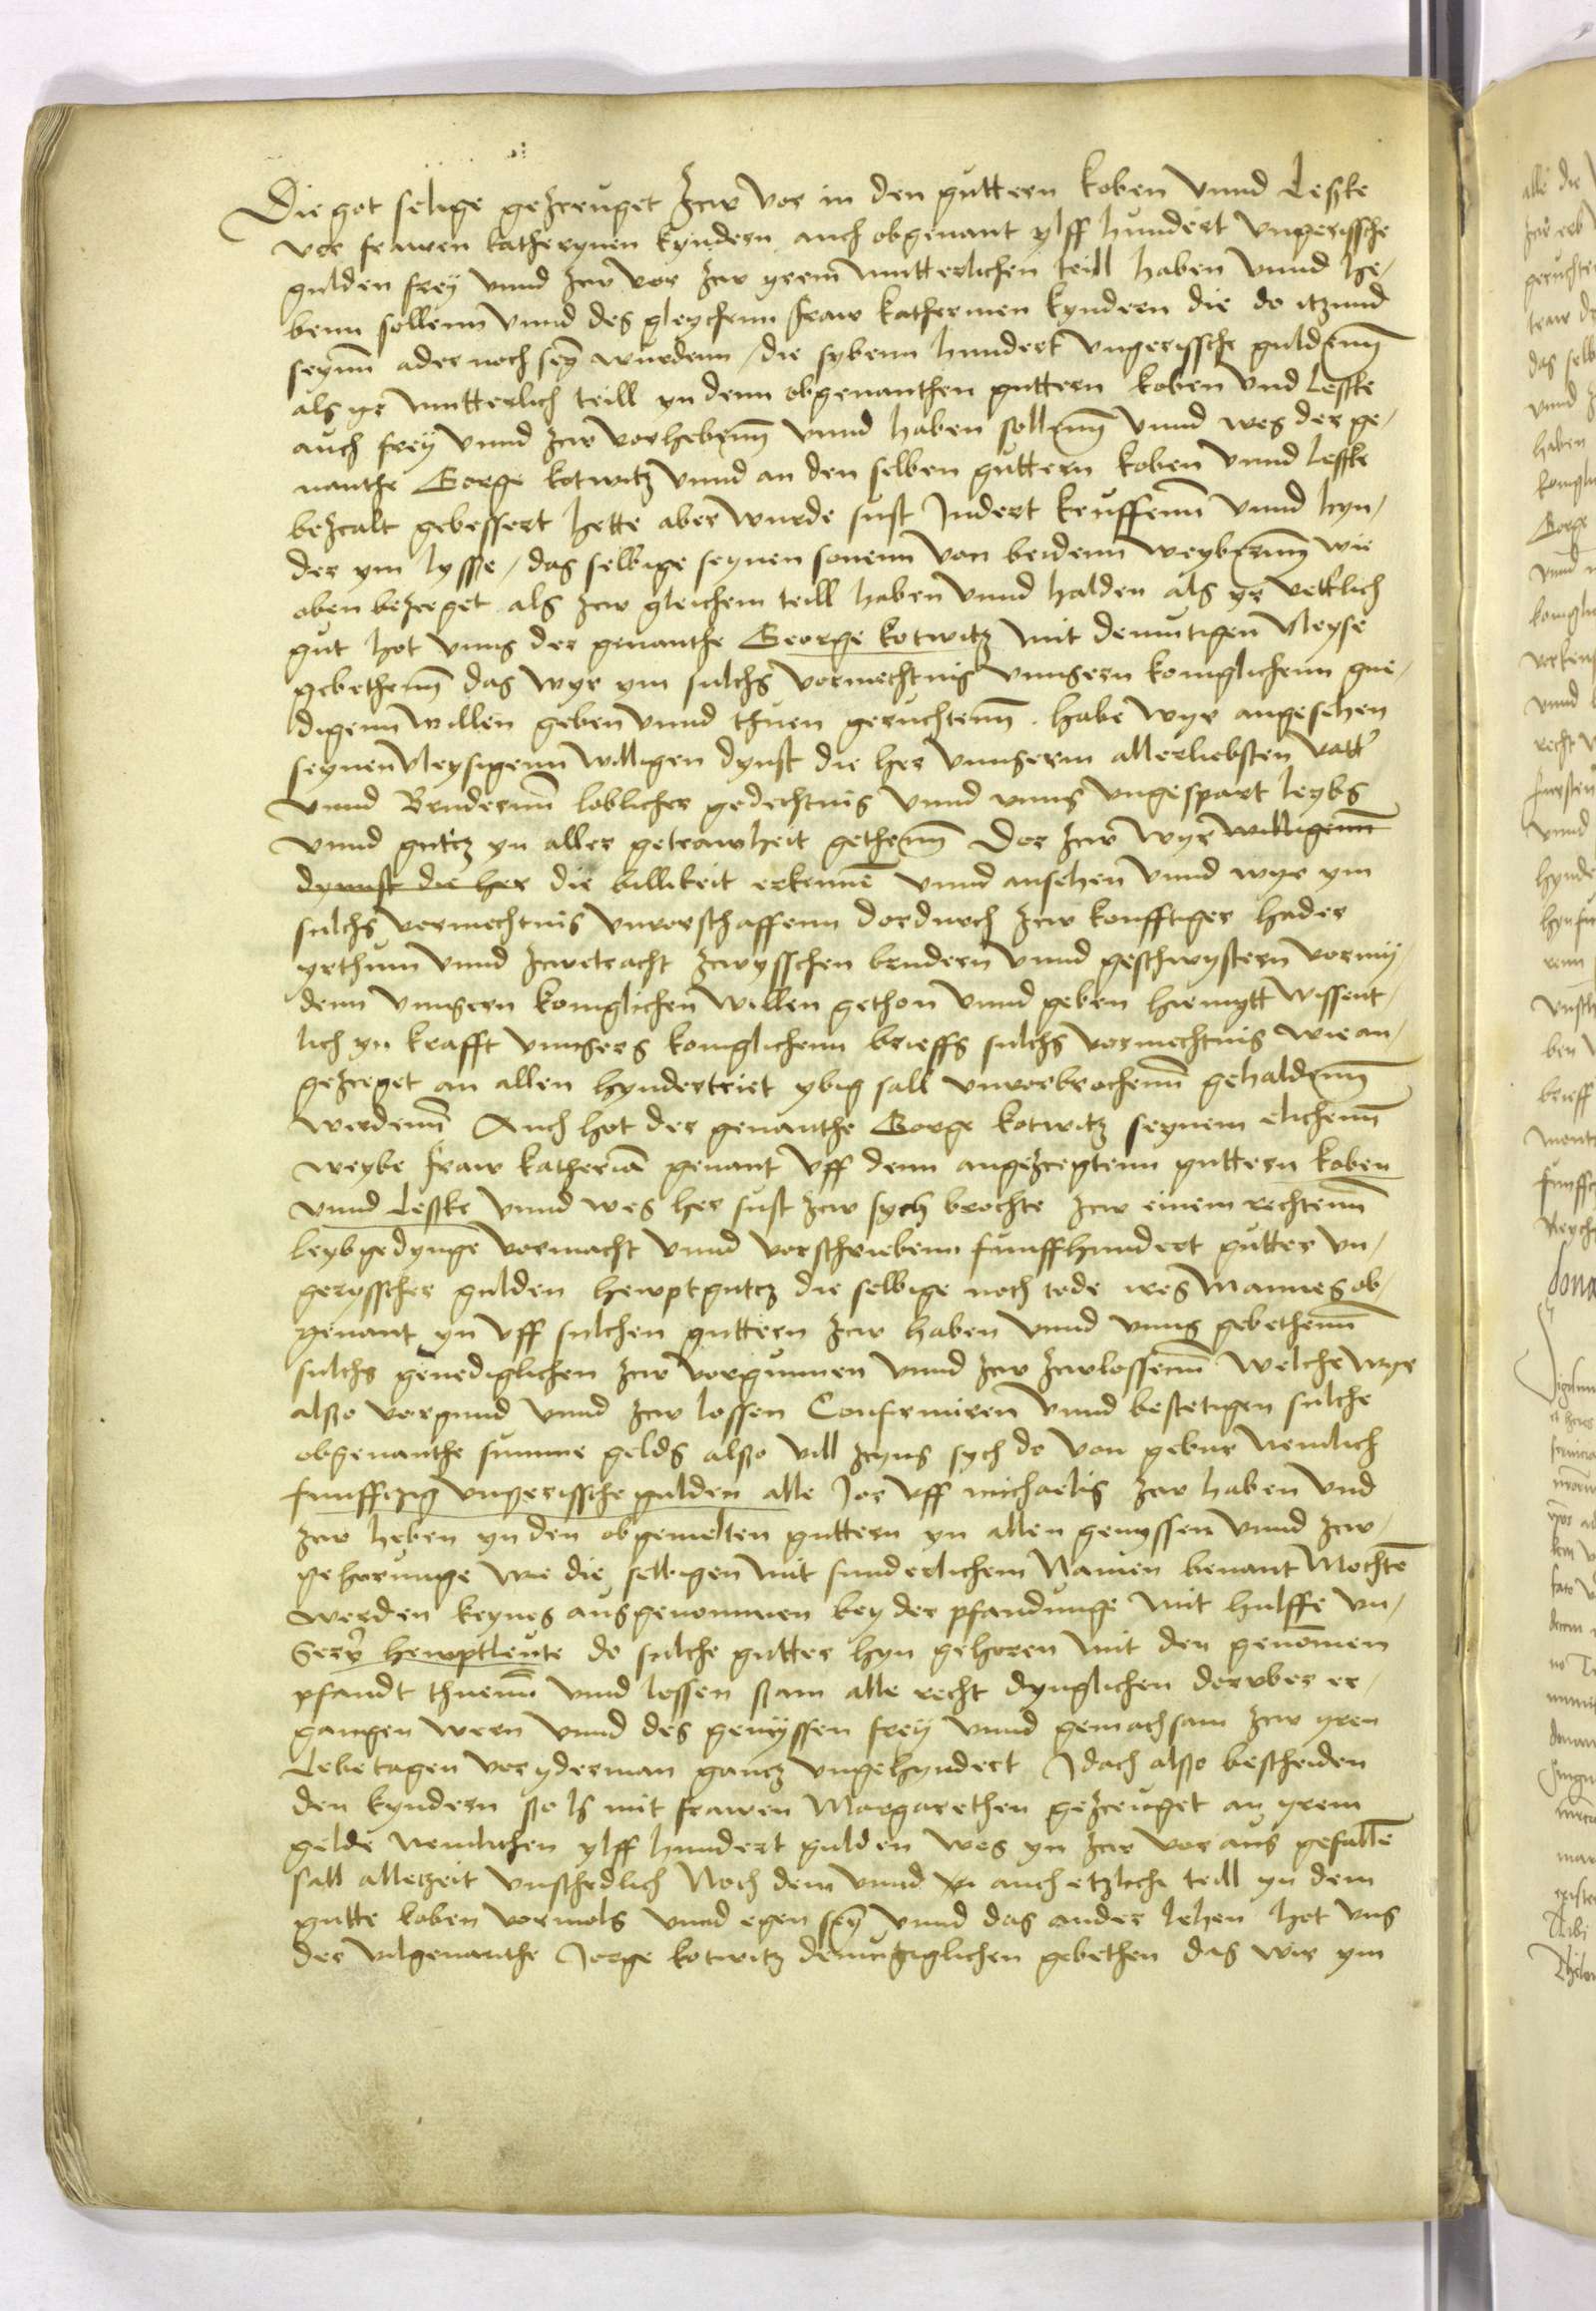 Die got selige geczeuget zcw vor in den guttern koben vnnd Leßke
vor frawen katherynen kyndern auch obgenant ylff hundert vngerissche
gulden frey vnnd zcw vor zcw yrem mutterlichen teill haben vnnd he-
benn sollenn vnnd des gleychenn fraw katherinen kyndern die do itzund
seynn ader noch sey wurdenn / die sybenn hundert vngerissche guldenn
als yr mutterlich teill yn denn obgenanthen guttern koben vnd Leßke
auch frey vnnd zcw vorhebenn vnnd haben sollenn vnnd wes der ge-
nanthe George kotwitz vnnd an den selben guttern koben vnnd Leßke
bezcalt gebessert hette aber wurde sust Indert keuffenn vnnd hyn-
der ym lysse / das selbige seynen sonenn von beidenn weybernn wie
oben bezceget als zcw gleichem teill haben vnnd halden als yr vetterlich
gut hot vnns der genanthe George kotwitz mit demutigen vleyse
gebethenn das wyr ym sulchs vormechtnis vnnsern koniglichenn gne-
digenn willen geben vnnd thuen geruchtenn . habe wyr angesehen
seynen vleysigenn willigen dynst die her vnnserm allerliebsten vatter
vnnd Brudernn loblicher gedechtnis vnnd vnns vngespart leybs
vnnd gutcz yn aller getrawheit gethenn Dor zcw wyr willigenn
dynnst die her die billikeit erkennen vnnd ansehen vnnd wyr ym
sulchs vormechtnis vnvorschaffenn dordurch zcw konfftiger hader
yrthum vnnd zcwetracht zcwysschen brudern vnnd geschwystern vormy-
denn vnnsern koniglichen willen gethon vnnd geben hiemytt wissent-
lich yn krafft vnnsers koniglichenn brieffs sulchs vormechtnis wie an-
gezceget an allen hyndertriet ybig sall vnvorbrochenn gehaldenn
werdenn Auch hot der genanthe George kotwitz seynem elichenn
weybe fraw katherina genant vff denn angezcegtenn guttern koben
vnnd Leßke vnnd wes her sust zcw sych brochte zcw einem rechtenn
leybgedynge vormacht vnnd vorschriebenn funffhundert gutter vn-
gerysscher gulden hewptgutcz die selbige noch tode ires Mannes ob-
genant yn vff sulchen guttern zcw haben vnnd vnns gebethenn
sulchs genediglichen zcw vorgunnen vnnd zcw zcwlossenn welche wyr
also vorgund vnnd zcw lossen Confirmiren vnnd bestetigen sulche
obgenanthe summe gelds also vill zcyns sych do von gebur nemlich
funffczig vngerissche gulden alle Jor vff michaelis zcw haben vnd
zcw heben yn den obgemelten guttern yn allen genyssen vnnd zcw-
gehorunge wie die selbigen mit sunderlichem Namen benant Mochten
werden keynes ausgenommen bey der pfandunge mit hulffe vn-
sers hewptleute do sulche gutter hyn gehoren mit den genomen
pfandt thuenn vnnd lossen sam alle recht dynglichen dorober er-
gangen wern vnnd des genyssen frey vnnd gemachsam zcw yren
Lebetagen vor yderman gancz vngehyndert Idoch also bescheiden
den kyndern ßo Is mit frawen Margarethen gezceuget an yrem
gelde nemlichen ylff hundert gulden wes yn zcw vor aus gefallen
sall alletzeit vnschedlich Noch dem vnnd auch etzliche teill yn dem
gutte koben vormols vnnd egen sey vnnd das ander lehen hot vns
der vilgenanthe Jorge kotwitz demutiglichen gebethen das wir ym